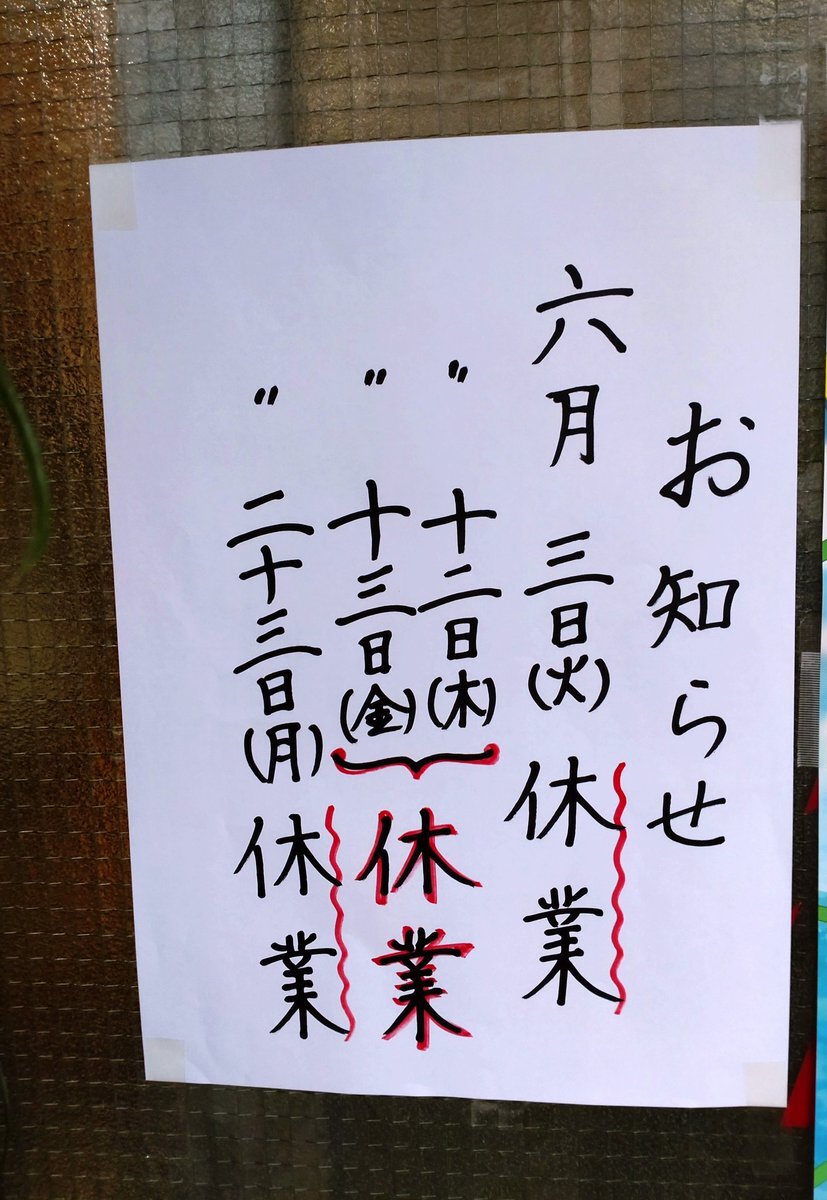 お知らせ
六月 三日(火)休業
〃 十二日(木)
〃 十三日(金)
休業
〃 二十三日(月)休業